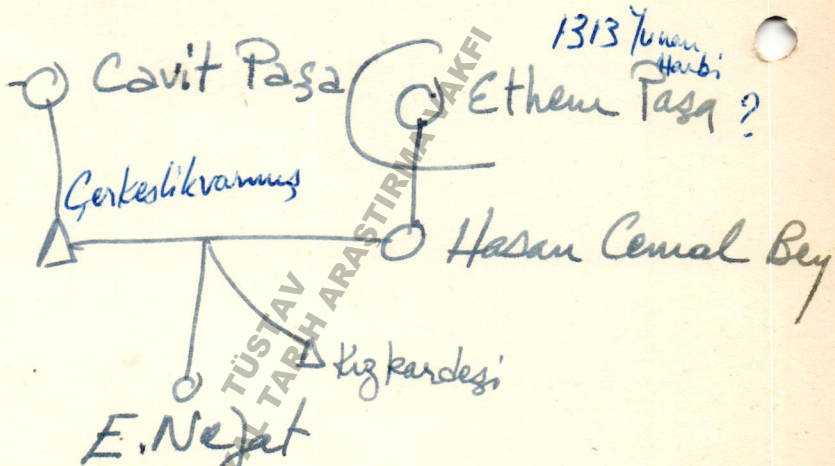 1313 Yunan
Harbi
Cavit Paşa
Ethem Paşa ?
Çerkeslikvarmış
Hasan Cemal Bey
Kızkardeşi
E. Nejat
TÜSTAV
TARİH ARAŞTIRMA VAKFI